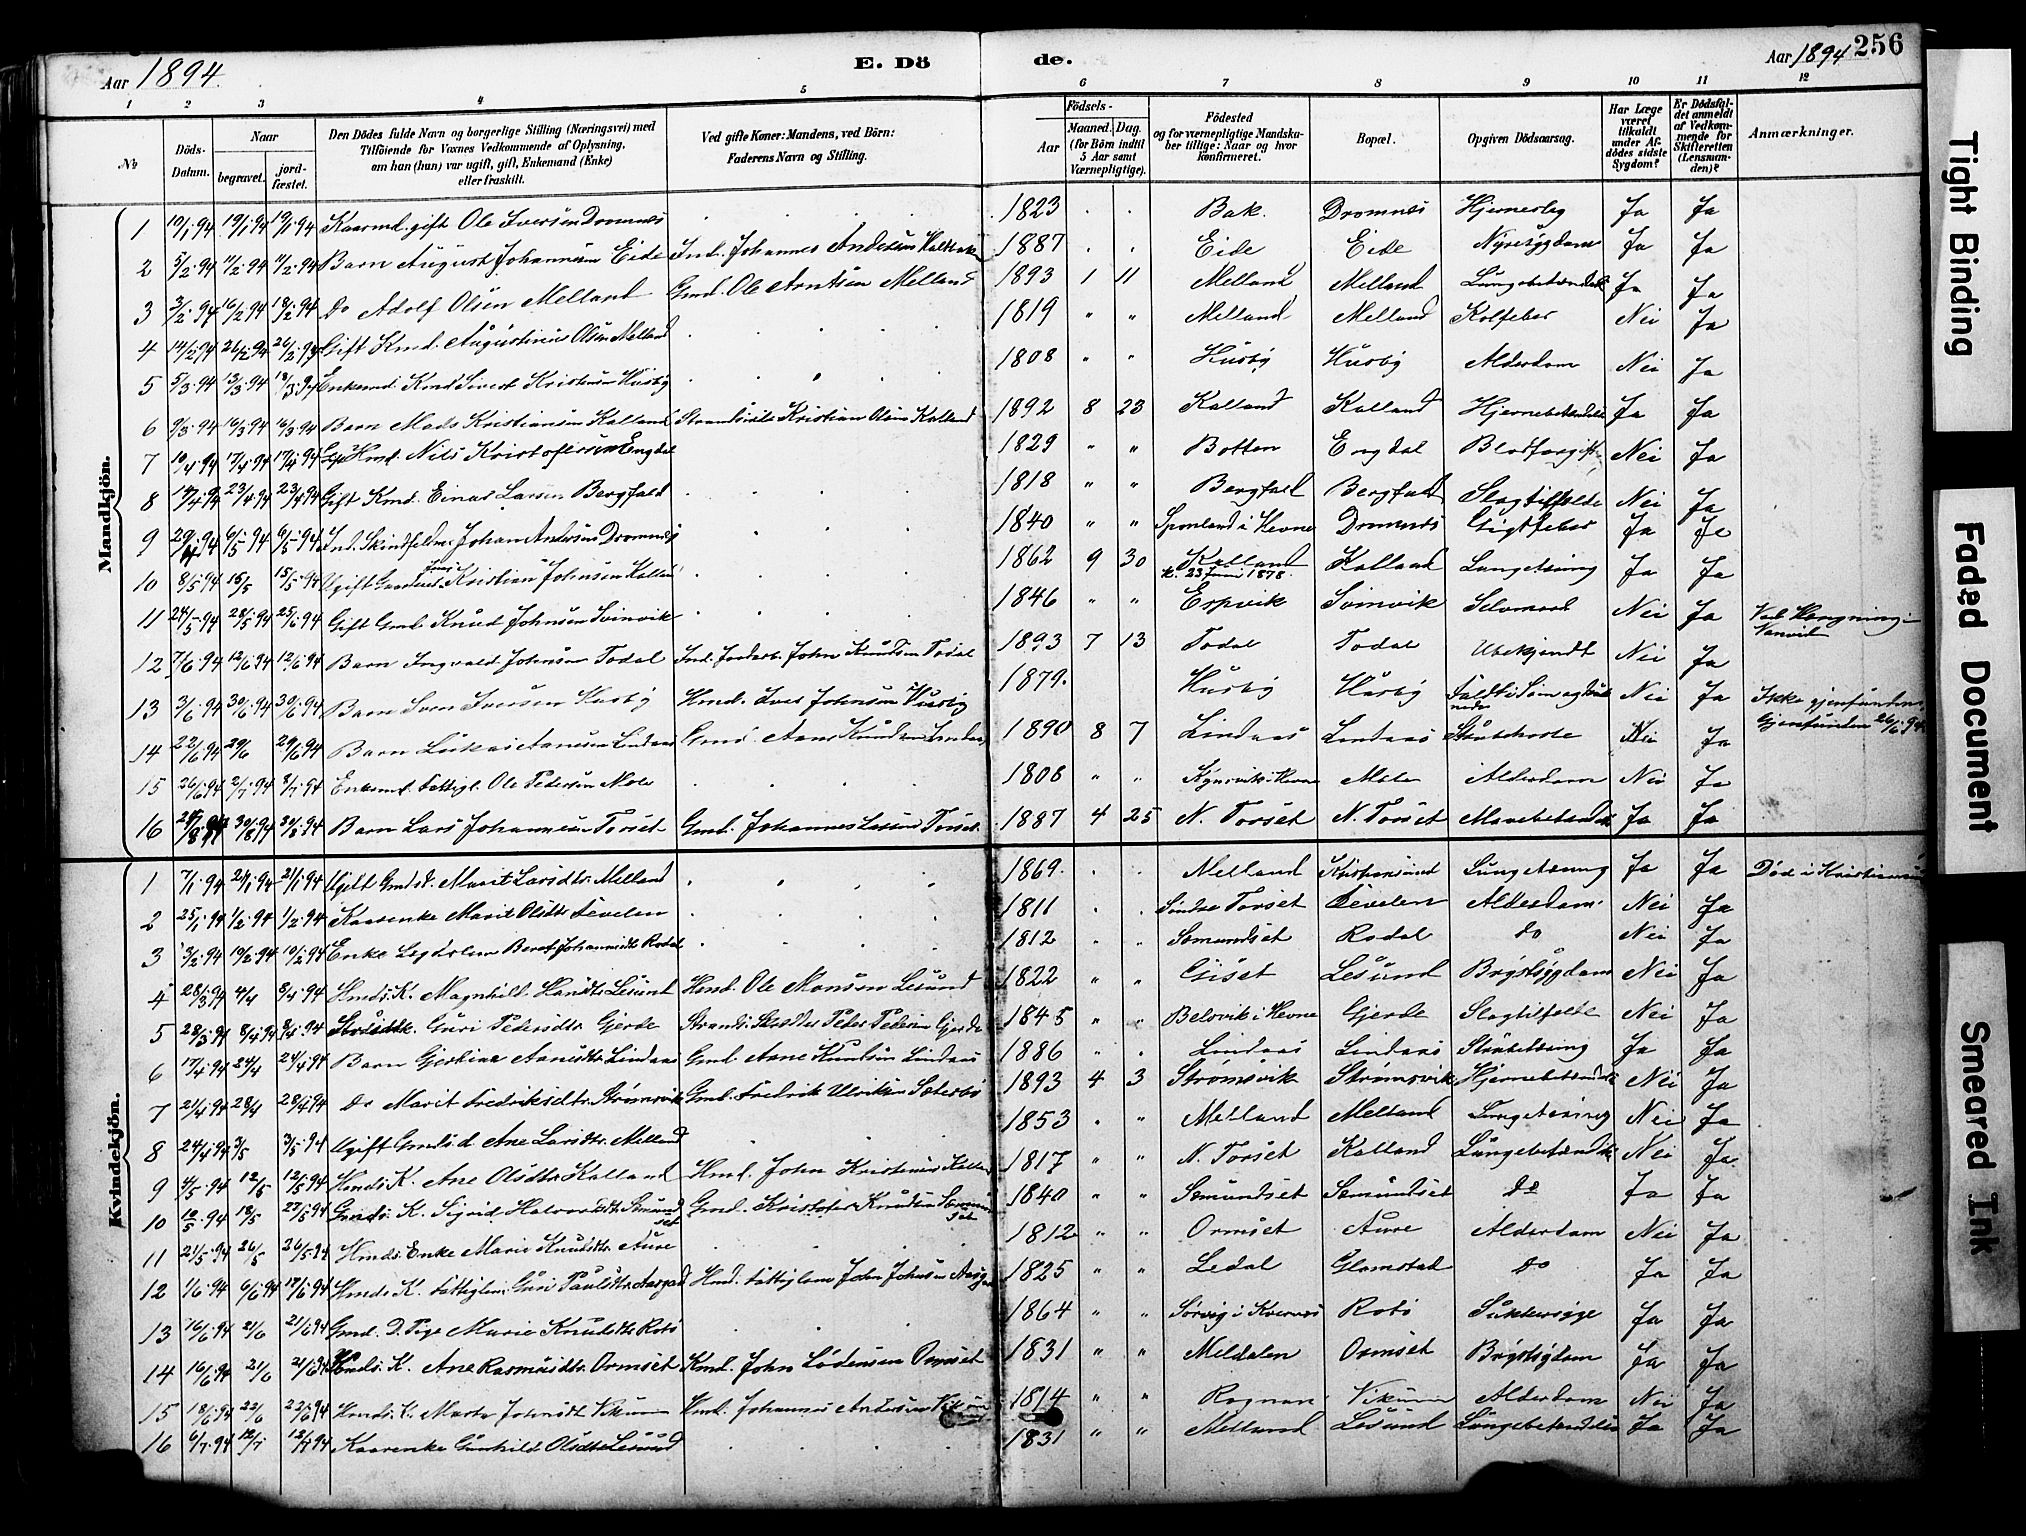 Aar 1894.
E. Döde.
Aar 1894 256
1 2 3 4 5 6 7 8 9 10 11 12
No
Döds-Datum.
Naar
begravet.
jordfæstet.
Den Dödes fulde Navn og borgerlige Stilling (Næringsvei) med Tilföiende for Voxnes Vedkommende af Oplysning, om han (hun) var ugift, gift, Enkemand (Enke) eller fraskilt.
Ved gifte Koner: Mandens, ved Börn: Faderens Navn og Stilling.
Födsels-
Aar
Maaned. Dag.
(for Börn indtil 5 Aar samt Værnepligtige).
Födested og for værnepligtige Mandskaber tillige: Naar og hvor konfirmeret.
Bopæl.
Opgiven Dödsaarsag.
Har Læge været tilkaldt under Afdödes sidste Sygdom?
Er Dödsfaldet anmeldt af Vedkommende for Skifteretten (Lensmanden)?
Anmærkninger.
Mandkjön.
1 10/1 94 19/1 94 19/1 94 Kaarmd. gift Ole Iversen Dromnes 1823 Bak. Dromnes Hjerneslag Ja Ja
2 5/2 94 11/2 94 11/2 94 Barn August Johannesen Eide Ind. Johannes Andersen 1887 Eide Eide Nyresygdom Ja Ja
3 3/2 94 16/2 94 18/2 94 Do Adolf Olsen Melland Gmd. Ole Arntsen Melland 1893 1 11 Melland Melland Lungebetændelse Ja Ja
4 14/2 94 26/2 94 26/2 94 Gift Kmd. Augustinus Olsen Melland 1819 " " Melland Melland Kolfeber Nei Ja
5 5/3 94 13/3 94 18/3 94 Enkemd. Kmd Sivert Kristensen Husby 1808 " " Husby Husby Alderdom Nei Ja
6 9/3 94 16/3 94 16/3 94 Barn Mads Kristiansen Kalland Strandsid. Kristian Olsen Kalland 1892 8 23 Kalland Kalland Hjernebetændelse Ja Ja
7 10/4 94 17/4 94 17/4 94 Hmd. Nils Kristofersen Engdal 1829 " " Botten Engdal Blodforgift. Nei Ja
8 14/4 94 23/4 94 23/4 94 Gift Kmd. Einar Larsen Bergfald 1818 " " Bergfald Bergfald Slagtilfælde Nei Ja
9 29/4 94 6/5 94 6/5 94 Ind. Skindfeldm. Johan Andersen Dromnes 1840 " " i Hevne Dromnes Gigtfeber Ja Ja
10 8/5 94 15/5 15/5 94 Ugift Kristian Johnsen Kalland 1862 9 30 Kalland k. 23 Juni 1878. Kalland Lungetæring Ja Ja
11 24/5 94 28/5 94 25/6 94 Gift Gmd. Knud Johnsen Svinvik 1846 " " Espvik Svinvik Selvmord Nei Ja Ved Hængning i Vanvid
12 7/6 94 12/6 94 12/6 94 Barn Ingvald Johnsen Todal Ind. Jordarb. John Knudsen Todal 1893 7 13 Todal Todal Ubekjendt Nei Ja
13 3/6 94 30/6 94 30/6 94 Barn Sven Iversen Husby Hmd. Iver Johnsen Husby 1879. Husby Husby Faldt i Søen og druknede Nei Ja Ikke gjenfunden. Gjenfunden 26/6 94
14 22/6 94 29/6 29/6 94 Barn Lukas Aanesen Lindaas Gmd. Aane Knudsen Lindaas 1890 8 7 Lindaas Lindaas Strubehoste Nei Ja
15 26/6 94 2/7 94 8/7 94 Enkemd. fattigl. Ole Pedersen Mole 1808 " " i Hevne Mole Alderdom Nei Ja
16 94 30/8 94 30/8 94 Barn Lars Johannesen Torset Gmd. Johannes Larsen Torset 1887 4 25 N. Torset N. Torset Mavebetændelse Ja Ja
Kvindekjön.
1 7/1 94 21/1 94 21/1 94 Ugift Gmd.d. Marit Larsdtr. Melland 1869. Melland Kristiansund Lungetæring Ja Ja Död i Kristiansund
2 25/1 94 1/2 94 1/2 94 Kaarenke Marit Olsdtr. Tevelen 1811 Søndre Torset Tevelen Alderdom Nei Ja
3 3/2 94 10/2 94 10/2 94 Enke Legdslem Beret Johannesdtr Rodal 1812 Semundset Rodal do Nei Ja
4 28/3 94 4/4 8/4 94 Hmds. K. Magnhild Hansdtr. Lesund Hmd. Ole Monsen Lesund 1822 " " Giset Lesund Brystsygdom Nei Ja
5 28/3 94 8/4 94 8/4 94 Guri Pedersdtr. Gjerde Strands. Skrædder Peder Pedersen Gjerde 1845 " " Belsvik i Hevne Gjerde Slagtilfælde Nei Ja
6 17/4 94 24/4 24/4 94 Barn Gjertine Aanesdtr. Lindaas Gmd. Aane Knudsen Lindaas 1886 " " Lindaas Lindaas Strubetæring Ja Ja
7 21/4 94 28/4 28/4 94 do Marit Fredriksdtr. Strømsvik Gmd. Fredrik Ulriksen 1893 4 3 Strømsvik Strømsvik Hjernebetændelse Nei Ja
8 24/4 94 3/5 3/5 94 Ugift Gmds d. Ane Larsdtr. Melland 1853 " " Melland Melland Lungetæring Nei Ja
9 4/5 94 12/5 12/5 94 Hmds. K. Ane Olsdtr. Kalland Hmd. John Kristensen Kalland 1817 " " N. Torset Kalland Lungebetændelse Nei Ja
10 10/5 94 18/5 22/5 94 Gmds. K. Sigrid Halvorsdtr. Semundset Gmd. Kristofer Knudsen Semundset 1840 " " Semundset Semundset do Ja Ja
11 21/5 94 26/5 26/5 94 Hmds. Enke Marie Knudsdtr. Aure 1812 " " Ormset Aure Alderdom Nei Ja
12 1/6 94 6/6 94 17/6 94 Hmds K. fattiglem Guri Paulsdtr. Hmd. fattiglem John Johnsen 1825 " " Ledal Glamstad do Ja Ja
13 16/6 94 21/6 21/6 94 Gmd. D. Pige Marie Knudsdtr. Rotø 1864 " " Sørvig i Kvernes Rotø Sukkersyge Ja Ja
14 16/6 94 21/6 21/6 94 Kmds. K. Ane Rasmusdtr. Ormset Kmd. John Lodensen Ormset 1831 " " Meldalen Ormset Brystsygdom Ja Ja
15 18/6 94 22/6 22/6 94 Hmds. K. Marta Johnsdtr Vikum Hmd. Johannes Andersen Vikum 1814 " " Rognan Vikum Alderdom Nei Ja
16 6/7 94 12/7 12/7 94 Kaarenke Gunhild Olsdtr. Lesund 1831 " " Melland Lesund Lungebetændelse Ja Ja
Tight Binding
Faded Document
Smeared Ink